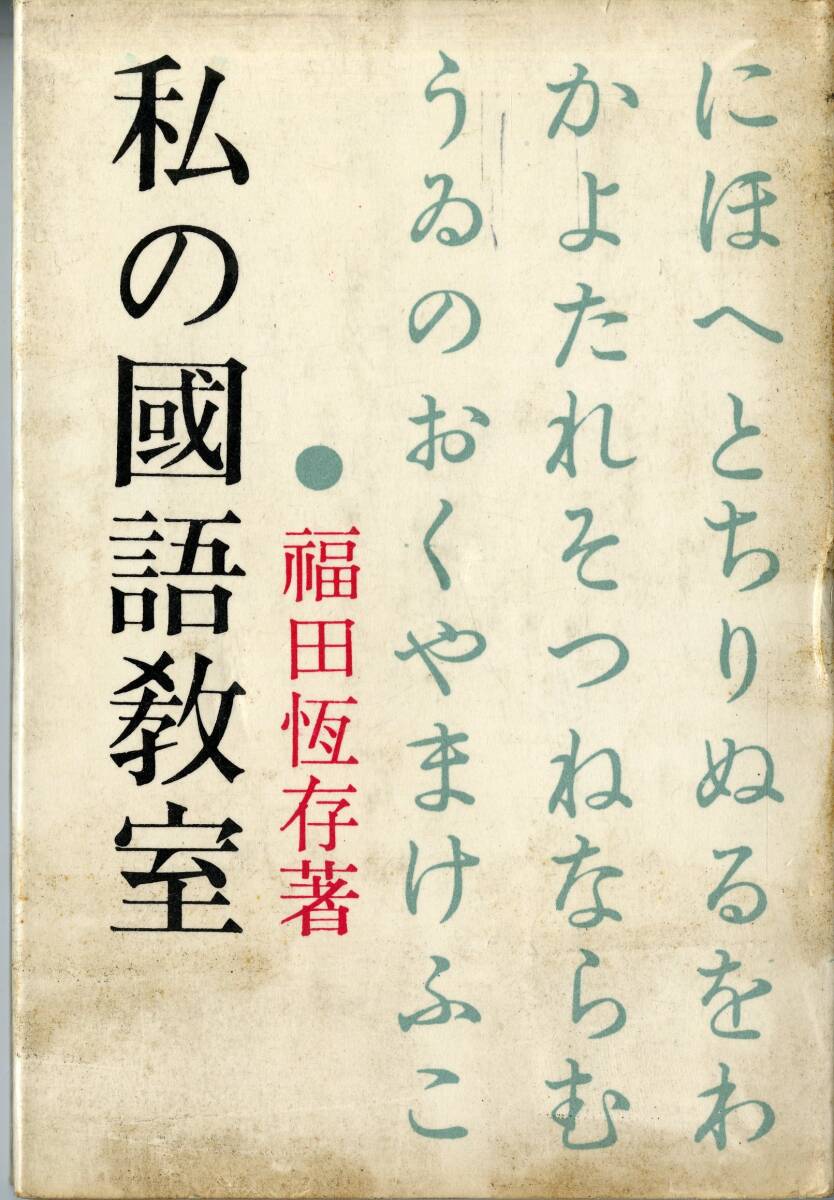 にほへとちりぬるをわ
かよたれそつねならむ
うゐのおくやまけふこ
●福田恆存著
私の國語敎室